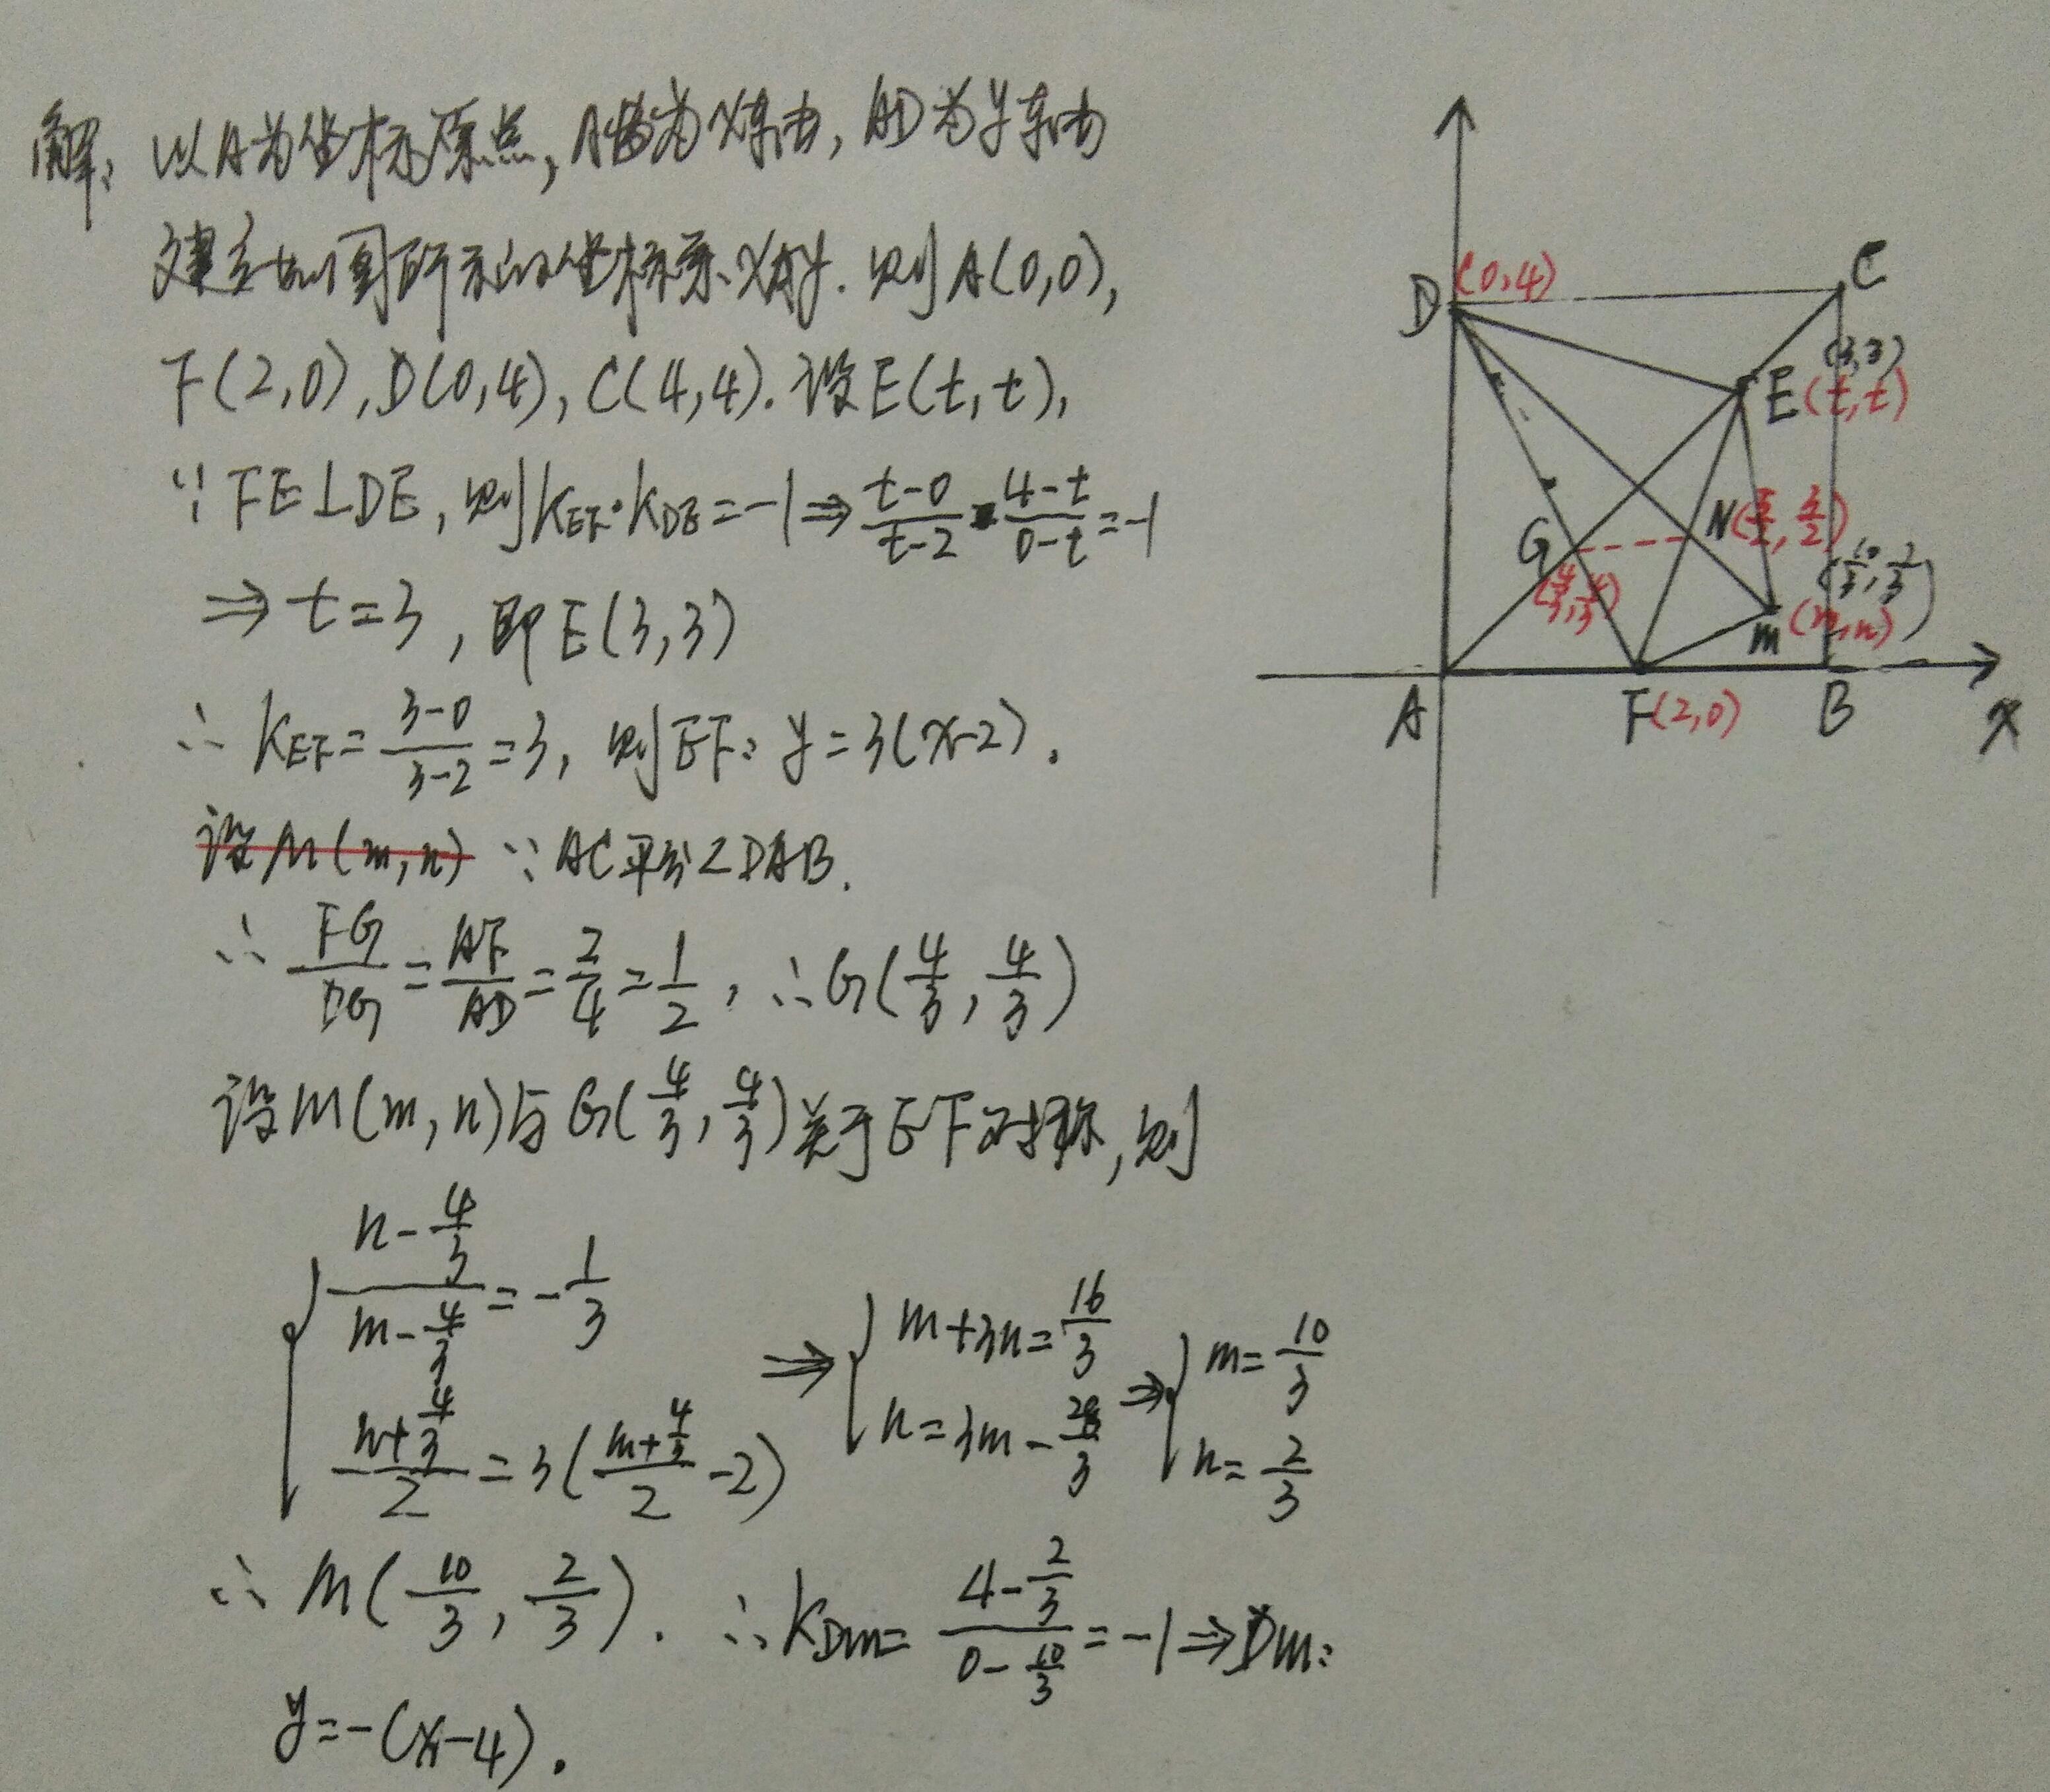 解: 以A为坐标原点, AB为x轴, AD为y轴
建立如图所示的坐标系xAy. 则A(0,0),
F(2,0), D(0,4), C(4,4). 设E(t,t),
∵ FE⊥DE, 则k_EF·k_DE=-1⇒(t-0)/(t-2)·(4-t)/(0-t)=-1
⇒ t=3, 即E(3,3)
∴ k_EF=(3-0)/(3-2)=3, 则EF: y=3(x-2).
设M(m,n) ∵ AC平分∠DAB.
∴ FG/DG=AF/AD=2/4=1/2, ∴G(4/3,4/3)
设M(m,n)与G(4/3,4/3)关于EF对称, 则
{ (n-4/3)/(m-4/3)=-1/3
(n+4/3)/2=3((m+4/3)/2-2)
⇒{ m+3n=16/3
n=3m-28/3
⇒{ m=10/3
n=2/3
∴ M(10/3,2/3). ∴k_DM=(4-2/3)/(0-10/3)=-1⇒DM:
y=-(x-4).
D(0,4)
C
(3,3)
E(t,t)
G
(4/3,4/3)
N(5/2,3/2)
(10/3,2/3)
M(m,n)
A
F(2,0)
B
x